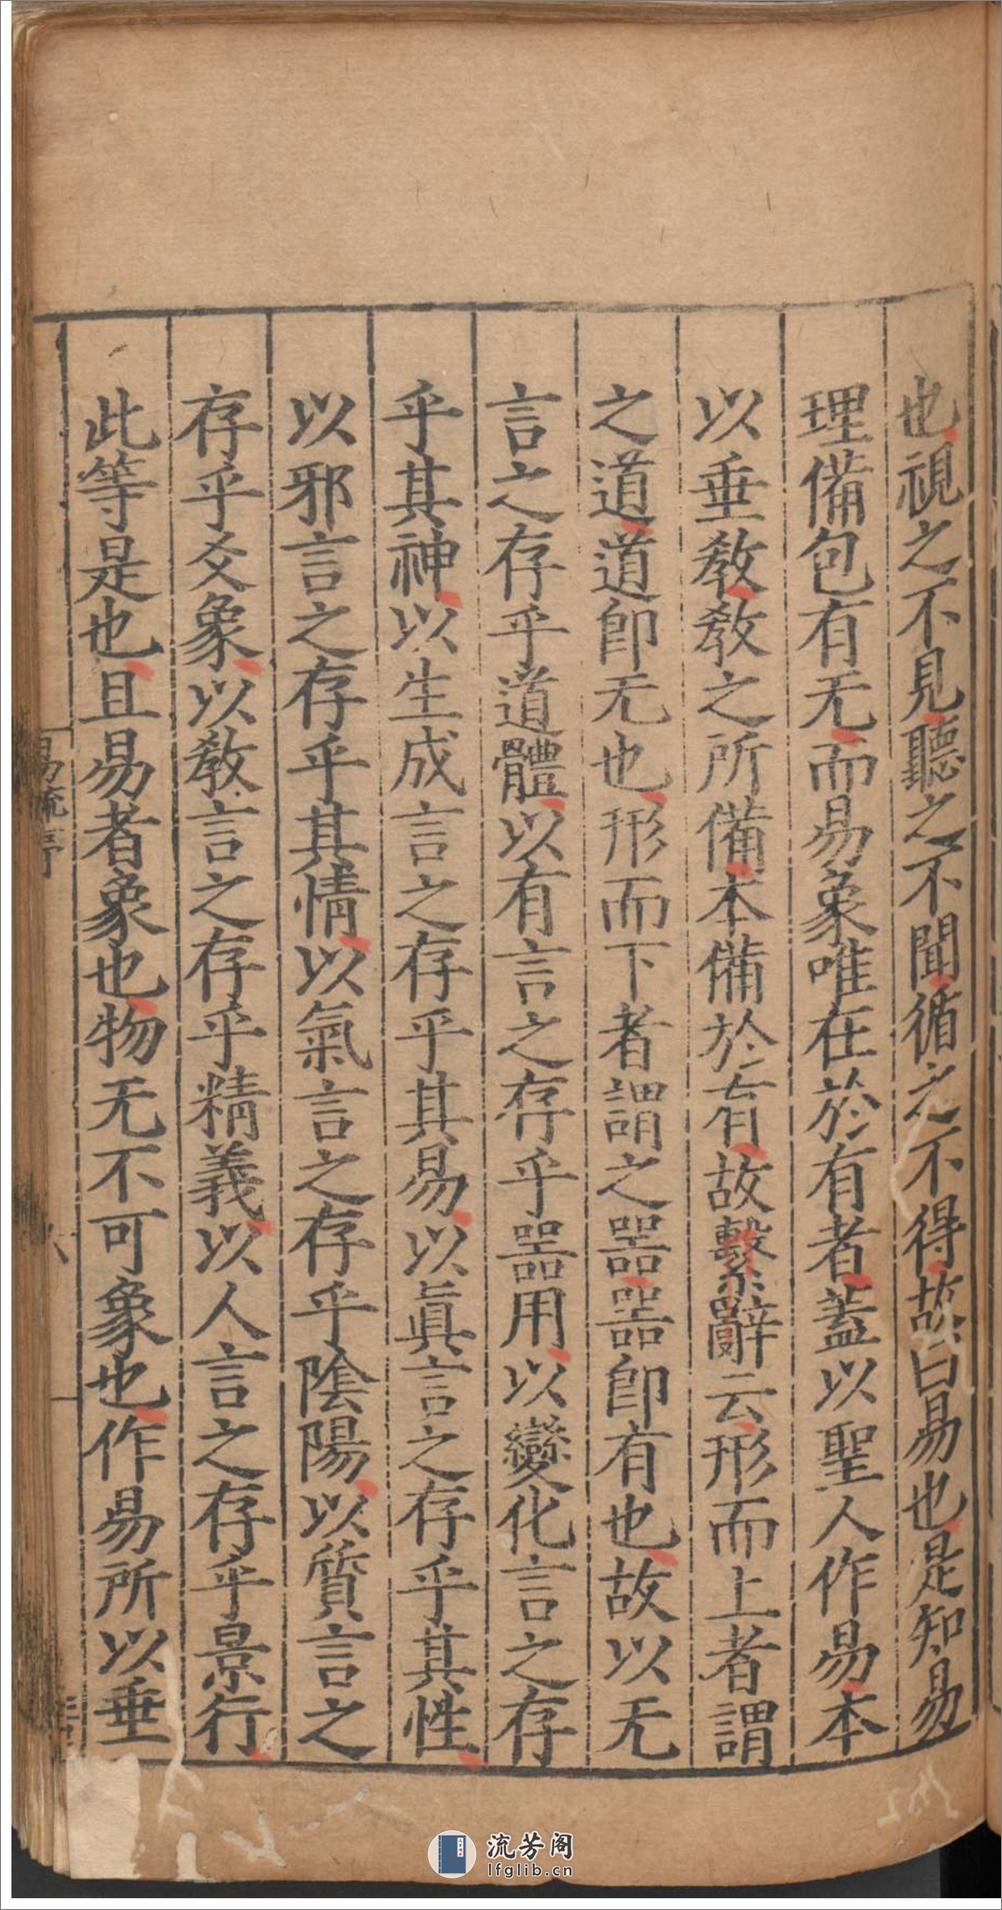 也視之不見聽之不聞循之不得故曰易也是知易
理備包有无而易象唯在於有者蓋以聖人作易本
以垂教教之所備本備於有故繫辭云形而上者謂
之道道卽无也形而下者謂之噐噐卽有也故以无
言之存乎道體以有言之存乎噐用以變化言之存
乎其神以生成言之存乎其易以眞言之存乎其性
以邪言之存乎其情以氣言之存乎陰陽以質言之
存乎爻象以教言之存乎精義以人言之存乎景行
此等是也且易者象也物无不可象也作易所以垂
易疏序
流芳阁
lfglib.cn